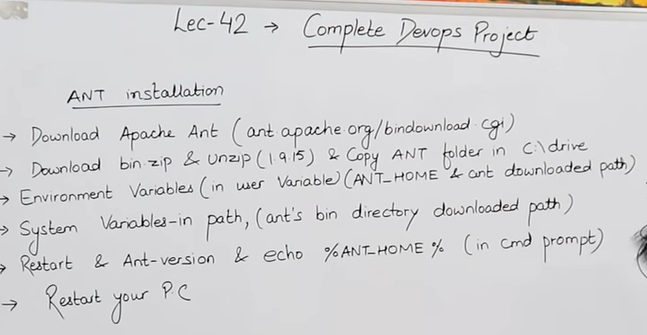 Lec-42 → Complete Devops Project
ANT installation
→ Download Apache Ant (ant.apache.org/bindownload.cgi)
→ Download bin.zip & Unzip (1.9.15) & Copy ANT folder in C:\drive
→ Environment Variables (in user Variable) (ANT_HOME & ant downloaded path)
→ System Variables-in path, (ant's bin directory downloaded path)
→ Restart & Ant-version & echo %ANT_HOME% (in cmd prompt)
→ Restart your P.C